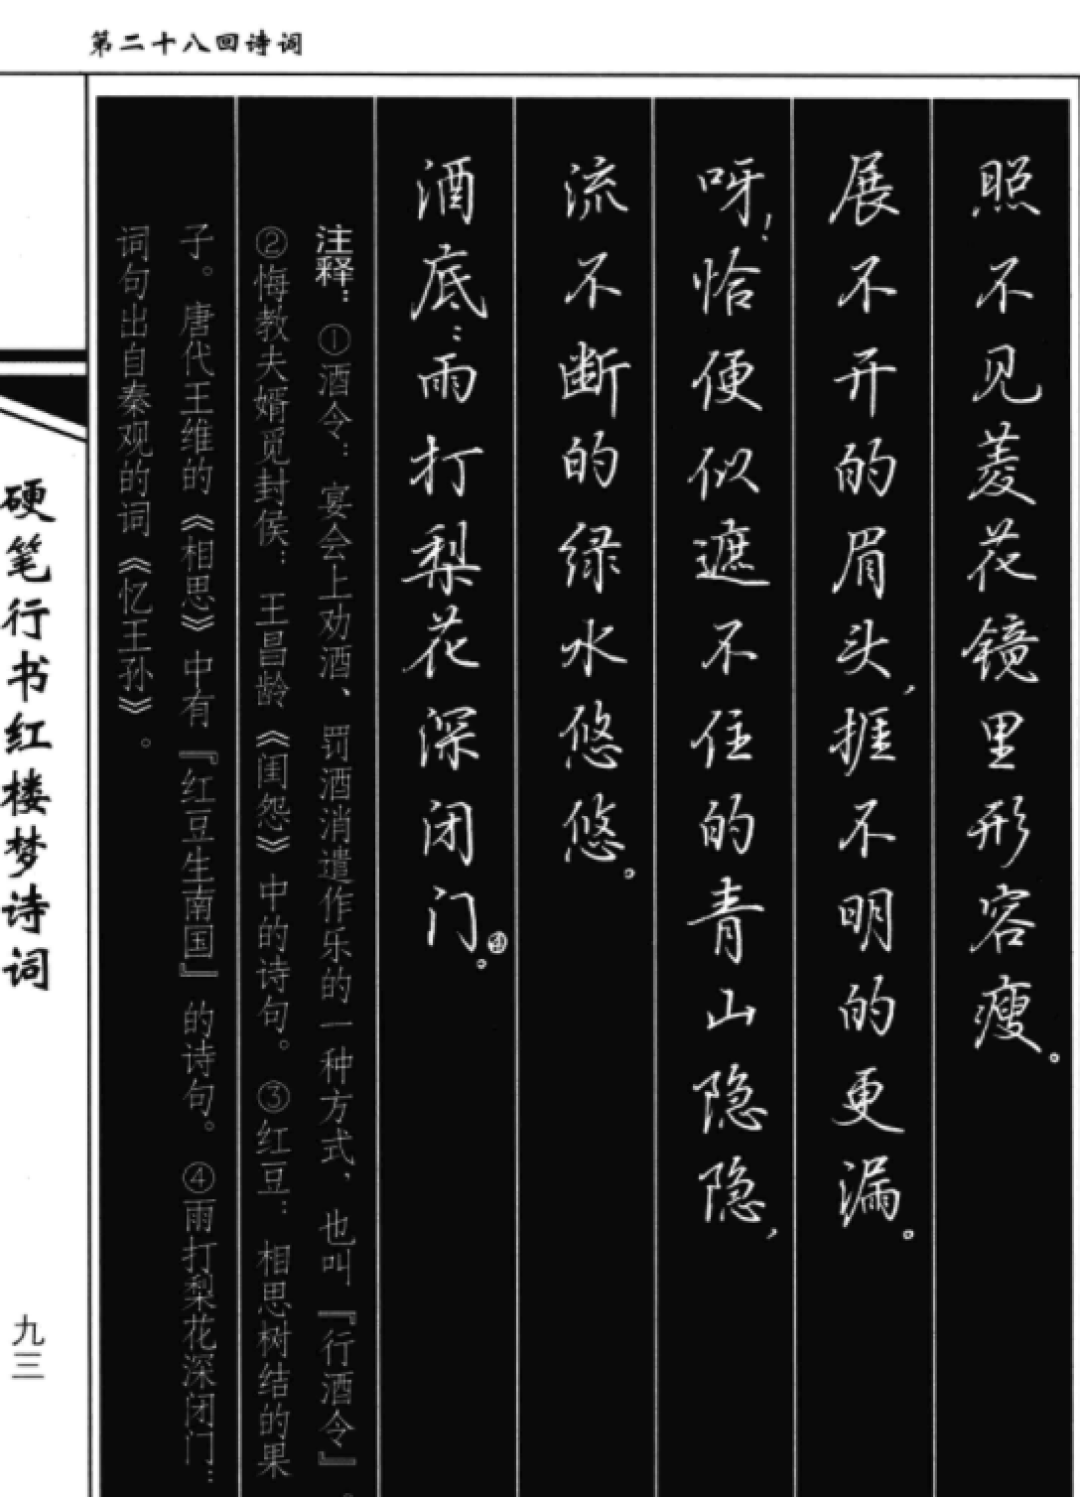 第二十八回诗词
照不见菱花镜里形容瘦。
展不开的眉头，捱不明的更漏。
呀！恰便似遮不住的青山隐隐，
流不断的绿水悠悠。
酒底：雨打梨花深闭门。④
注释：①酒令：宴会上劝酒、罚酒消遣作乐的一种方式，也叫『行酒令』。
②悔教夫婿觅封侯：王昌龄《闺怨》中的诗句。③红豆：相思树结的果
子。唐代王维的《相思》中有『红豆生南国』的诗句。④雨打梨花深闭门：
词句出自秦观的词《忆王孙》。
硬笔行书红楼梦诗词
九三